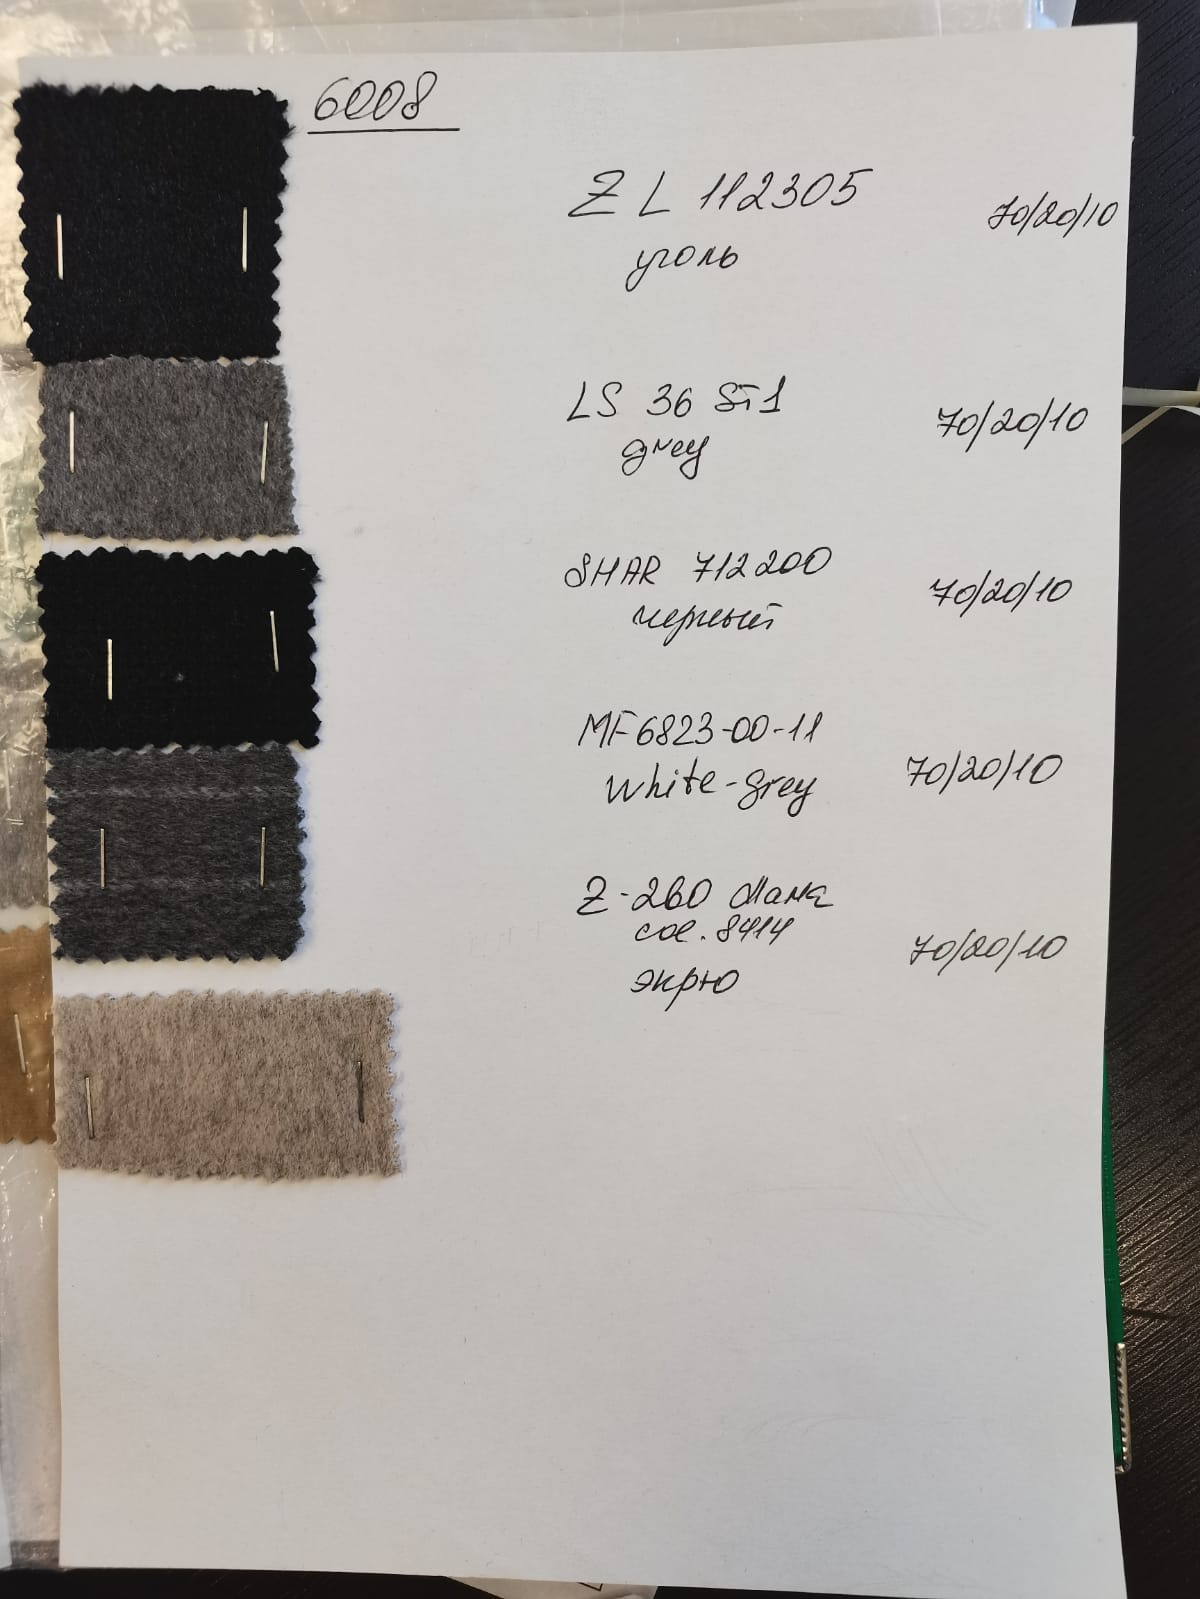 6008
ZL 112305 70/20/10
уголь
LS 36 St1 70/20/10
grey
SHAR 712200 70/20/10
черный
MF6823-00-11
white-grey 70/20/10
Z-260
col. 8414 70/20/10
экрю